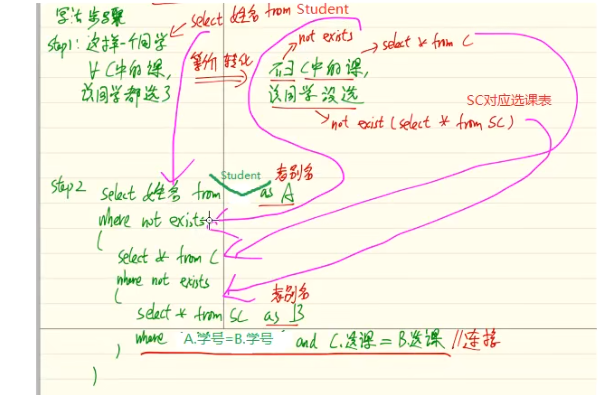 写法步骤
select 姓名 from Student
step1: 这样一个同学
∀ C中的课,
该同学都选了
等价 转化
not exists
select * from C
不∃ C中的课,
该同学没选
not exist (select * from SC)
SC对应选课表
step2 select 姓名 from Student as A
表别名
where not exists
(
select * from C
where not exists
(
表别名
select * from SC as B
where A.学号=B.学号 and C.选课 = B.选课 //连接
)
)